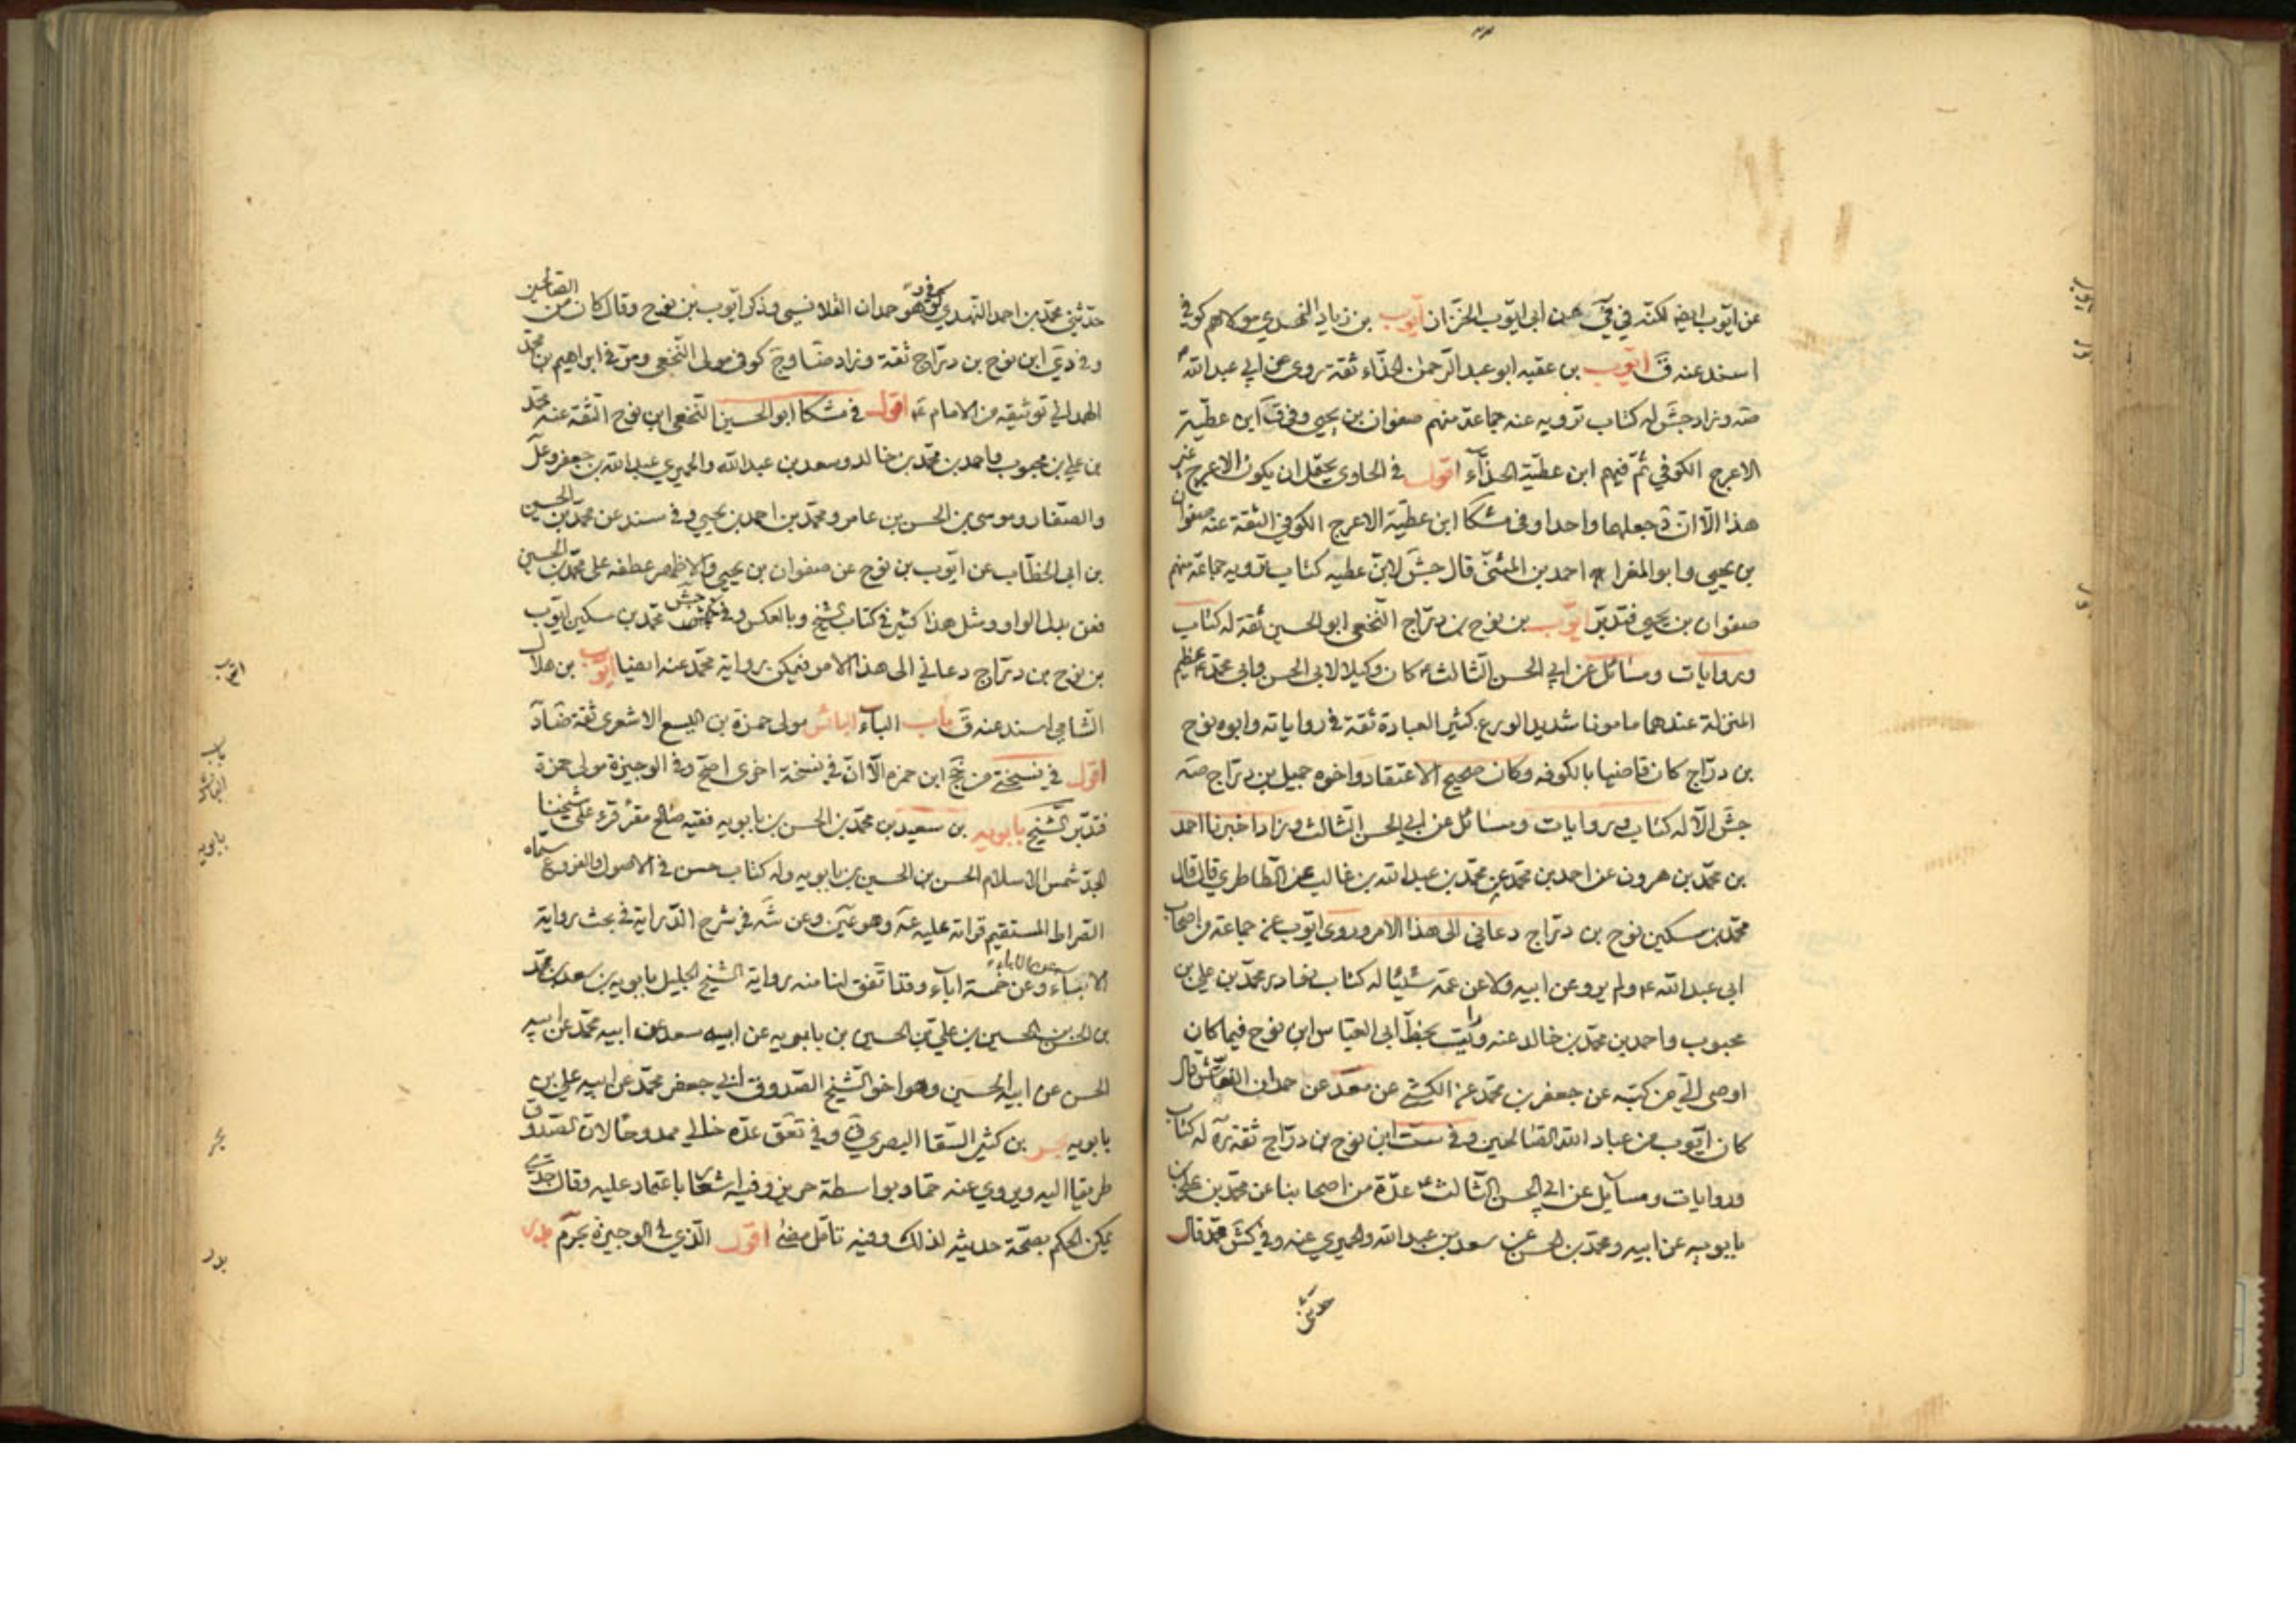 عن ايوب ايضا لكنه في عن ابى ايوب الخزاز ايوب بن زياد النهدي مولاهم كوفي
اسند عنه ق ايوب بن عقبه ابو عبد الرحمن الحذاء ثقة روى عن ابي عبد الله
صه وزاد جش له كتاب ترويه عنه جماعة منهم صفوان بن يحيى وفي ق ابن عطية
الاعرج الكوفي ثم فيهم ابن عطية الحذاء اقول في الحاوي يحتمل ان يكون الاعرج غير
هذا الا ان جعلهما واحدا وفي مشكا ابن عطية الاعرج الكوفي الثقة عنه صفوان
بن يحيى وابو المغرا احمد بن المثنى قال جش لابن عطيه كتاب ترويه جماعة منهم
صفوان بن يحيى فتدبر ايوب بن نوح بن دراج النخعي ابو الحسين ثقة له كتاب
وروايات ومسائل عن ابي الحسن الثالث ع كان وكيلا لابى الحسن وابى محمد ع عظيم
المنزلة عندهما مامونا شديد الورع كثير العبادة ثقة في رواياته وابوه نوح
بن دراج كان قاضيا بالكوفه وكان صحيح الاعتقاد واخوه جميل بن دراج صه
جش الا له كتاب وروايات ومسائل عن ابي الحسن الثالث وزاد اخبرنا احمد
بن محمد بن هرون عن احمد بن محمد عن محمد بن عبد الله بن غالب عن الطاطري قال قال
محمد بن سكين نوح بن دراج دعاني الى هذا الامر وروى ايوب عن جماعة من اصحاب
ابى عبد الله ع ولم يرو عن ابيه ولا عن عمه شيئا له كتاب نوادر محمد بن علي بن
محبوب واحمد بن محمد بن خالد عنه رايت بخط ابى العباس ابن نوح فيما كان
اوصى الي من كتبه عن جعفر بن محمد عن الكشي عن محمد عن حمدان النقاش قال
كان ايوب من عباد الله الصالحين وفي ست ابن نوح بن دراج ثقة له كتاب
وروايات ومسائل عن ابي الحسن الثالث ع عدة من اصحابنا عن محمد بن علي بن
بابويه عن ابيه ومحمد بن الحسن عن سعد بن عبد الله والحميري عنه وفي كش محمد قال
حدثني
حدثني محمد بن احمد النهدي كوفي وهو حمدان القلانسي وذكر ايوب بن نوح وقال كان من الصالحين
وفي دي ابن نوح بن دراج ثقة وزاد ضا وج كوفي مولى النخعي ومر في ابراهيم بن محمد
الهمداني توثيقه من الامام ع اقول في مشكا ابو الحسين النخعي ابن نوح الثقة عنه محمد
بن علي بن محبوب واحمد بن محمد بن خالد وسعد بن عبد الله والحميري عبد الله بن جعفر وعل
والصفار وموسى بن الحسن بن عامر ومحمد بن احمد بن يحيى وفي سند عن محمد بن الحسين
بن ابى الخطاب عن ايوب بن نوح عن صفوان بن يحيى والاظهر عطفه على محمد بن الحسين
فعن بدل الواو ومثل هذا كثير في كتاب الشيخ وبالعكس وفي جش محمد بن سكين ايوب
بن نوح بن دراج دعاني الى هذا الامر فيمكن رواية محمد عنه ايضا ايوب بن هلال
الشامي اسند عنه ق باب الباء البائس مولى حمزة بن اليسع الاشعري ثقة ضا د
اقول في نسختي من جخ ابن حمزه الا ان في نسخة اخرى اصح وفي الوجيزة مولى حمزة
فتدبر الشيخ بابويه بن سعيد بن محمد بن الحسن بن بابويه فقيه صالح مقرئ قرء على شيخنا
الجد شمس الاسلام الحسن بن الحسين بن بابويه وله كتاب حسن في الاصول والفروع سماه
الصراط المستقيم قراته عليه عه وهو عين وعن شه في شرح الدراية في بحث رواية
الابناء عن الاباء وعن خمسة اباء وقد اتفق لنا منه رواية الشيخ الجليل بابويه بن سعد بن محمد
بن الحسن بن الحسين بن علي بن الحسين بن بابويه عن ابيه سعد عن ابيه محمد عن ابيه
الحسن عن ابيه الحسين وهو اخو الشيخ الصدوق ابي جعفر محمد عن ابيه علي بن
بابويه بحر بن كثير السقا البصري ق وفي تعق عده خالي ممدوحا لان للصدوق
طريقا اليه ويروي عنه حماد بواسطة حريز وفيه اشعار باعتماد عليه وقال جدي
يمكن الحكم بصحة حديثه لذلك وفيه تامل مضى اقول الذي في الوجيزة بحر م بدر
ايوب
باب
البائس
بابويه
بحر
بدر